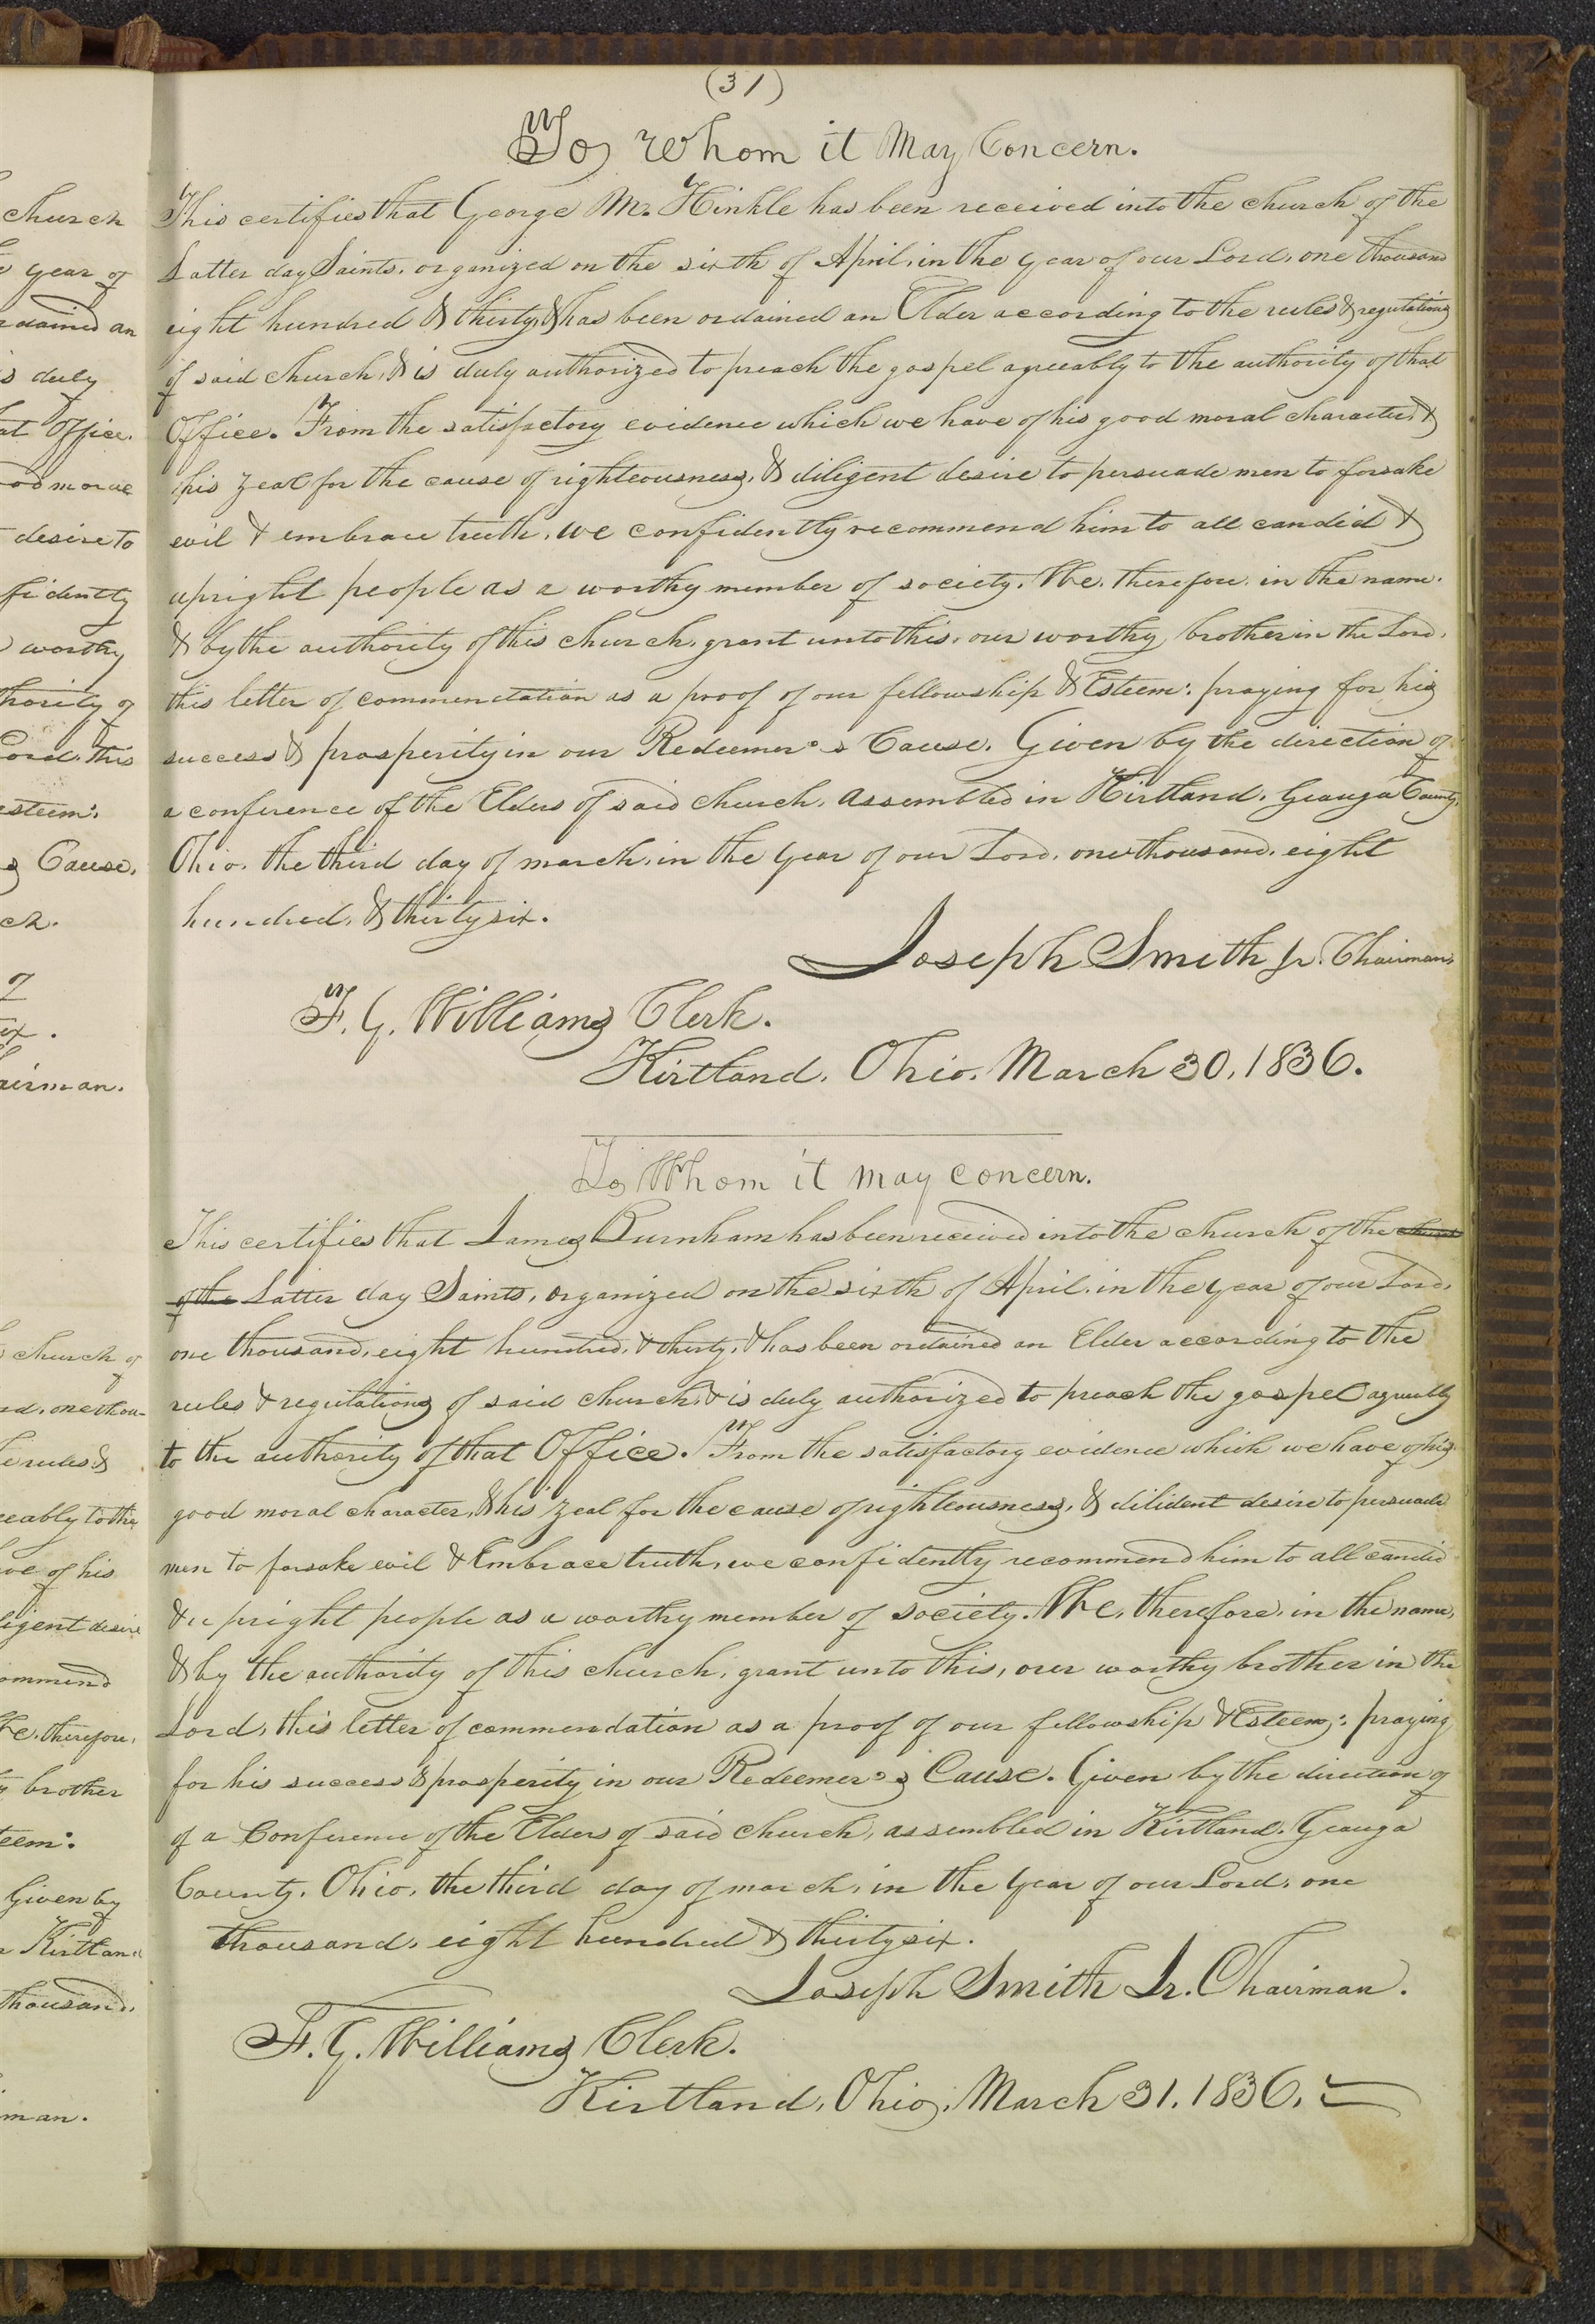 (31)
To Whom it May Concern.
This certifies that George M. Hinkle has been received into the church of the
Latter day Saints, organized on the sixth of April, in the year of our Lord, one thousand
eight hundred & thirty, & has been ordained an Elder according to the rules & regulations
of said church, & is duly authorized to preach the gospel agreeably to the authority of that
Office. From the satisfactory evidence which we have of his good moral character, &
his zeal for the cause of righteousness, & diligent desire to persuade men to forsake
evil & embrace truth, we confidently recommend him to all candid &
upright people as a worthy member of society. We, therefore, in the name,
& by the authority of this church, grant unto this, our worthy brother in the Lord,
this letter of commendation as a proof of our fellowship & Esteem: praying for his
success & prosperity in our Redeemer's Cause. Given by the direction of
a conference of the Elders of said church, assembled in Kirtland, Geauga County,
Ohio, the third day of march, in the year of our Lord, one thousand, eight
hundred, & thirty six.
Joseph Smith Jr. Chairman,
F. G. Williams Clerk.
Kirtland, Ohio, March 30, 1836.
To Whom it may concern.
This certifies that James Burnham has been received into the church of the church
of the Latter day Saints, organized on the sixth of April, in the year of our Lord,
one thousand, eight hundred, & thirty, & has been ordained an Elder according to the
rules & regulations of said church, & is duly authorized to preach the gospel agreeably
to the authority of that Office. From the satisfactory evidence which we have of his
good moral character, & his zeal for the cause of righteousness, & dilident desire to persuade
men to forsake evil & Embrace truth, we confidently recommend him to all candid
& upright people as a worthy member of society. We, therefore, in the name,
& by the authority of this church, grant unto this, our worthy brother in the
Lord, this letter of commendation as a proof of our fellowship & Esteem: praying
for his success & prosperity in our Redeemer's Cause. Given by the direction of
of a Conference of the Elders of said church, assembled in Kirtland, Geauga
County, Ohio, the third day of march, in the year of our Lord, one
thousand, eight hundred & thirty six.
Joseph Smith Jr. Chairman.
F. G. Williams Clerk.
Kirtland, Ohio, March 31, 1836.